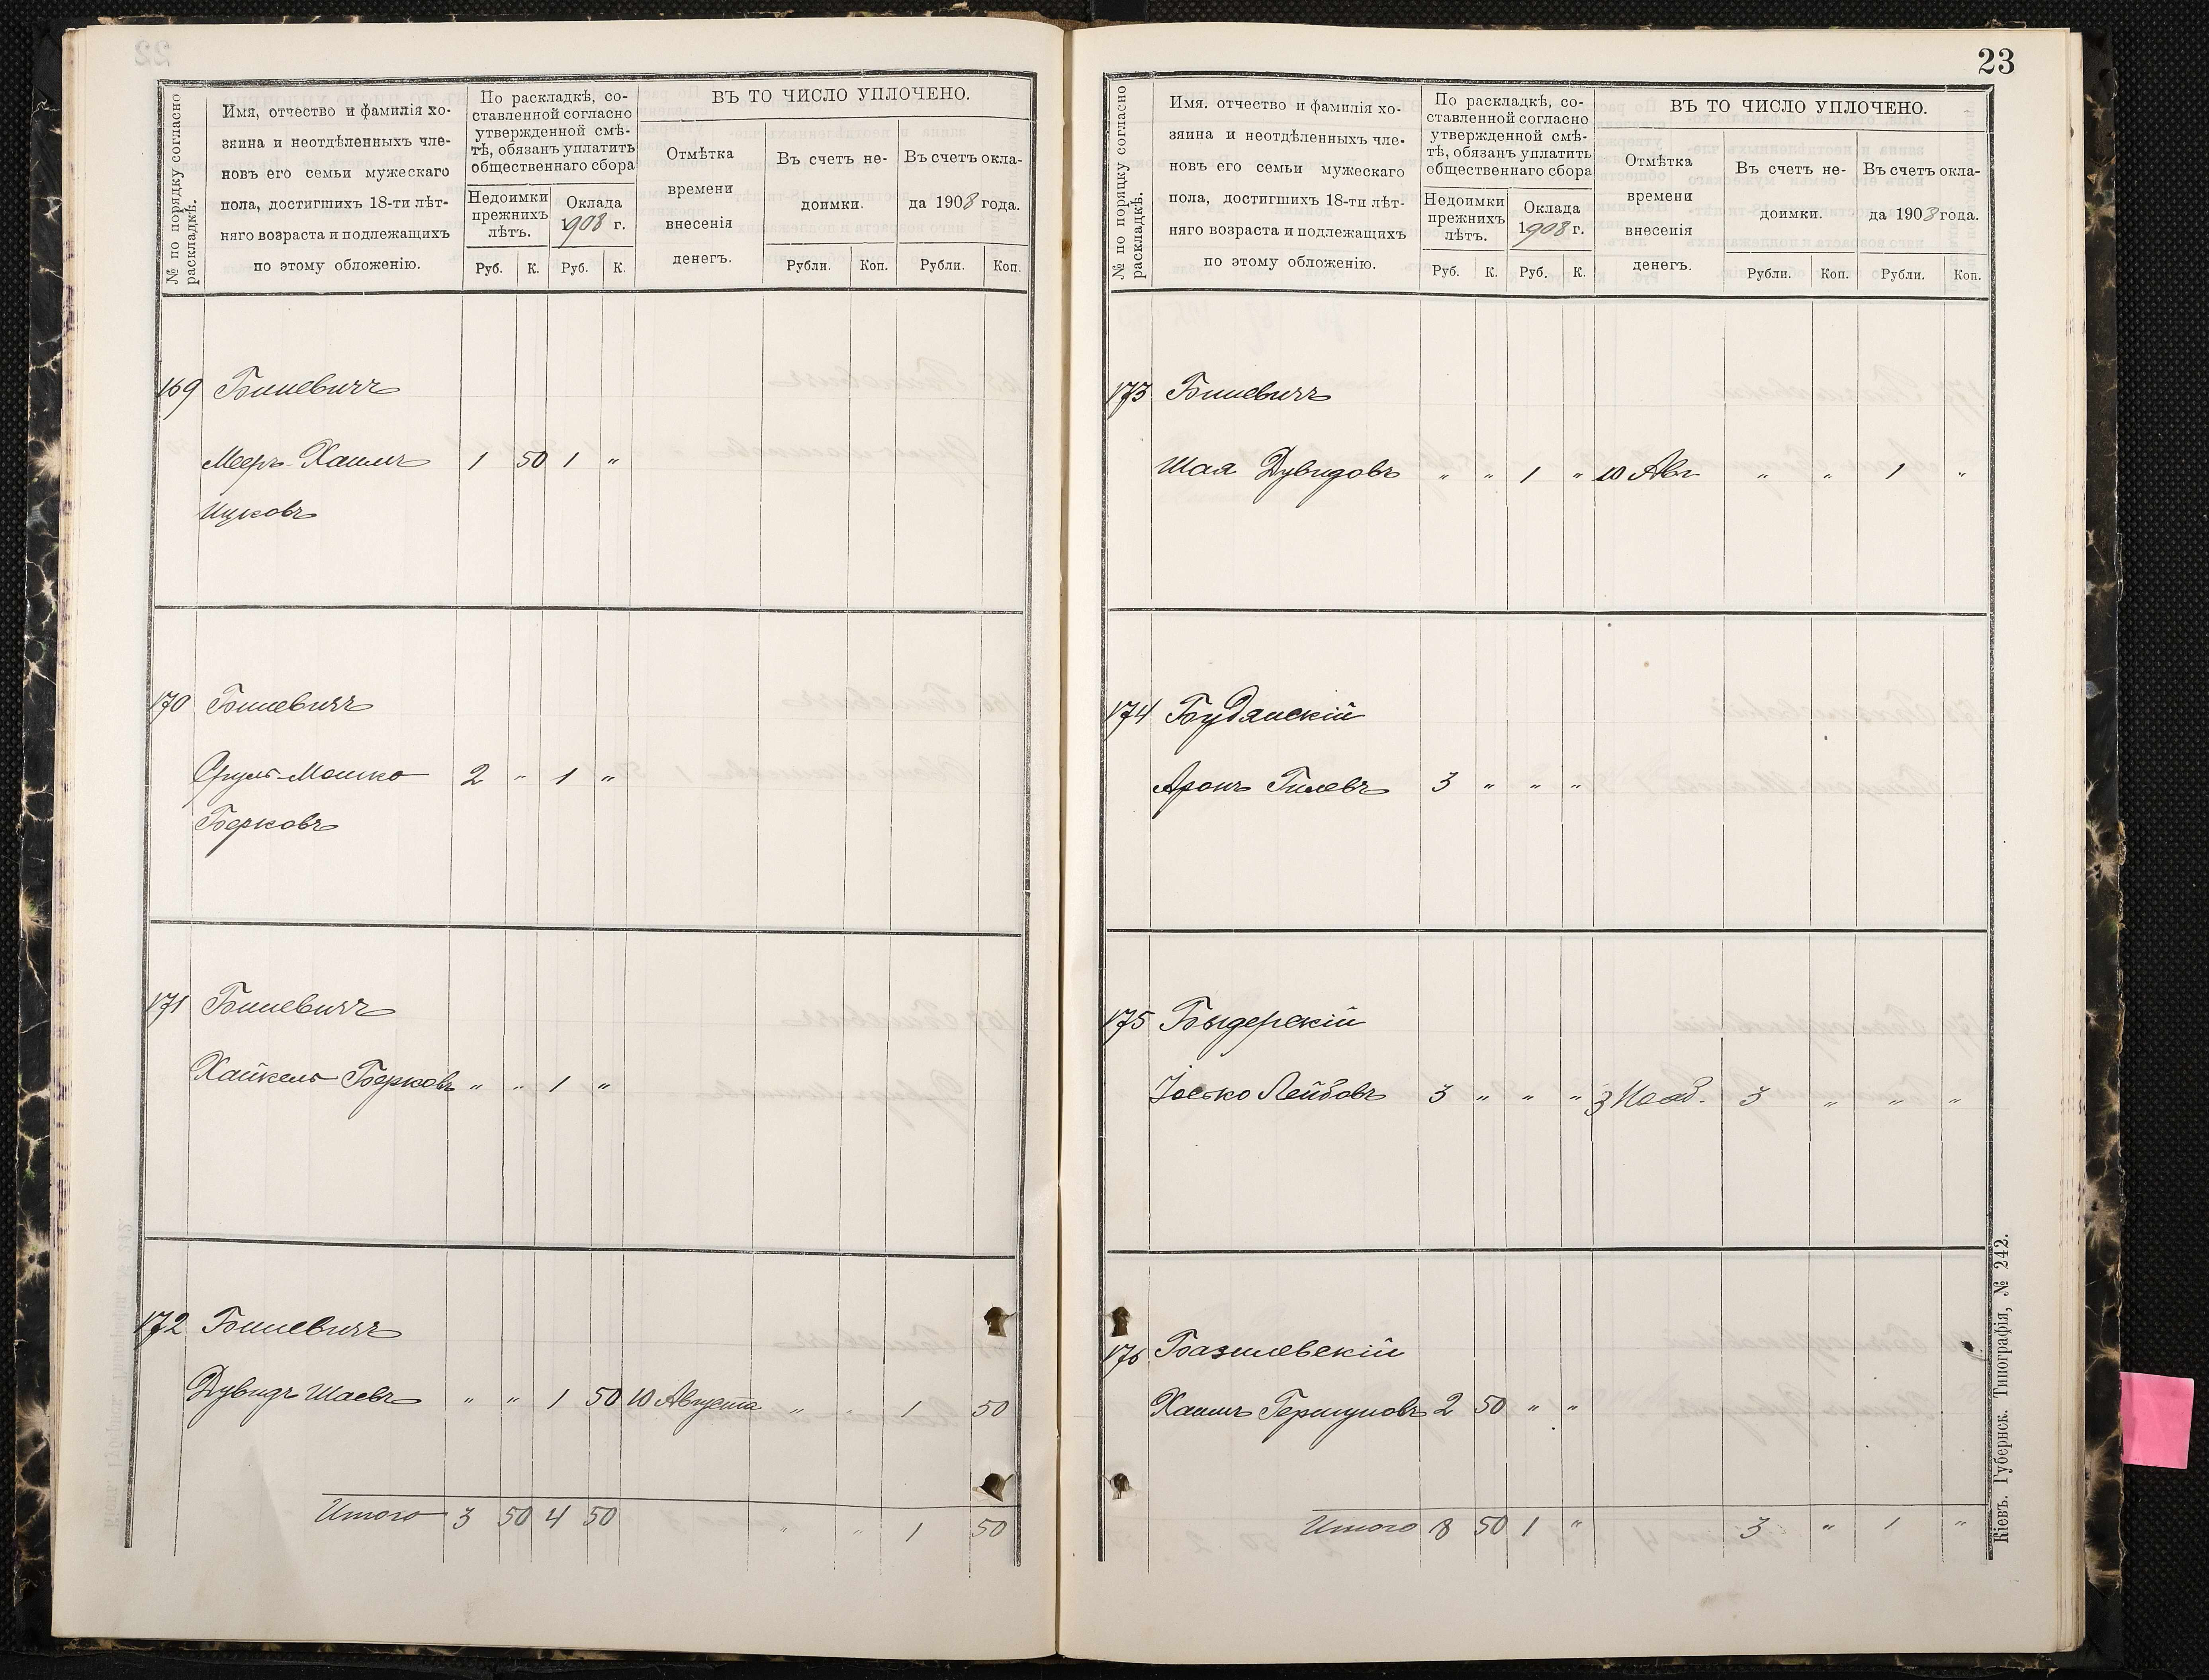 № по порядку согласно
раскладкѣ.
Имя, отчество и фамилія хо-
зяина и неотдѣленныхъ чле-
новъ его семьи мужескаго
пола, достигшихъ 18-ти лѣт-
няго возраста и подлежащихъ
по этому обложенію.
По раскладкѣ, со-
ставленной согласно
утвержденной смѣ-
тѣ, обязанъ уплатить
общественнаго сбора
Недоимки
прежнихъ
лѣтъ.
Оклада
1908 г.
Руб. К. Руб. К.
ВЪ ТО ЧИСЛО УПЛОЧЕНО.
Отмѣтка
времени
внесенія
денегъ.
Въ счетъ не-
доимки.
Въ счетъ окла-
да 1908 года.
Рубли. Коп. Рубли. Коп.
169 Бишевичъ
Мееръ-Хаимъ 1 50 1 "
Ицковъ
170 Бишевичъ
Сруль-Мошко 2 " 1 "
Берковъ
171 Бишевичъ
Хайкель Берковъ " " 1 "
172 Бишевичъ
Дувидъ Шаевъ " " 1 50 10 Августа " " 1 50
Итого 3 50 4 50 " " 1 50
23
№ по порядку согласно
раскладкѣ.
Имя. отчество и фамилія хо-
зяина и неотдѣленныхъ чле-
новъ его семьи мужескаго
пола, достигшихъ 18-ти лѣт-
няго возраста и подлежащихъ
по этому обложенію.
По раскладкѣ, со-
ставленной согласно
утвержденной смѣ-
тѣ, обязанъ уплатить
общественнаго сбора
Недоимки
прежнихъ
лѣтъ.
Оклада
1908 г.
Руб. К. Руб. К.
ВЪ ТО ЧИСЛО УПЛОЧЕНО.
Отмѣтка
времени
внесенія
денегъ.
Въ счетъ не-
доимки.
Въ счетъ окла-
да 1908 года.
Рубли. Коп. Рубли. Коп.
173 Бишевичъ
Шая Дувидовъ " " 1 " 10 Авг " " 1 "
174 Будянскій
Аронъ Гилевъ 3 " " "
175 Быдерскій
Іосько Лейбовъ 3 " " " 3 Нояб. 3 " " "
176 Базилевскій
Хаимъ Гершуновъ 2 50 " "
Итого 8 50 1 " 3 " 1 "
Кіевъ. Губернск. Типографія, № 242.